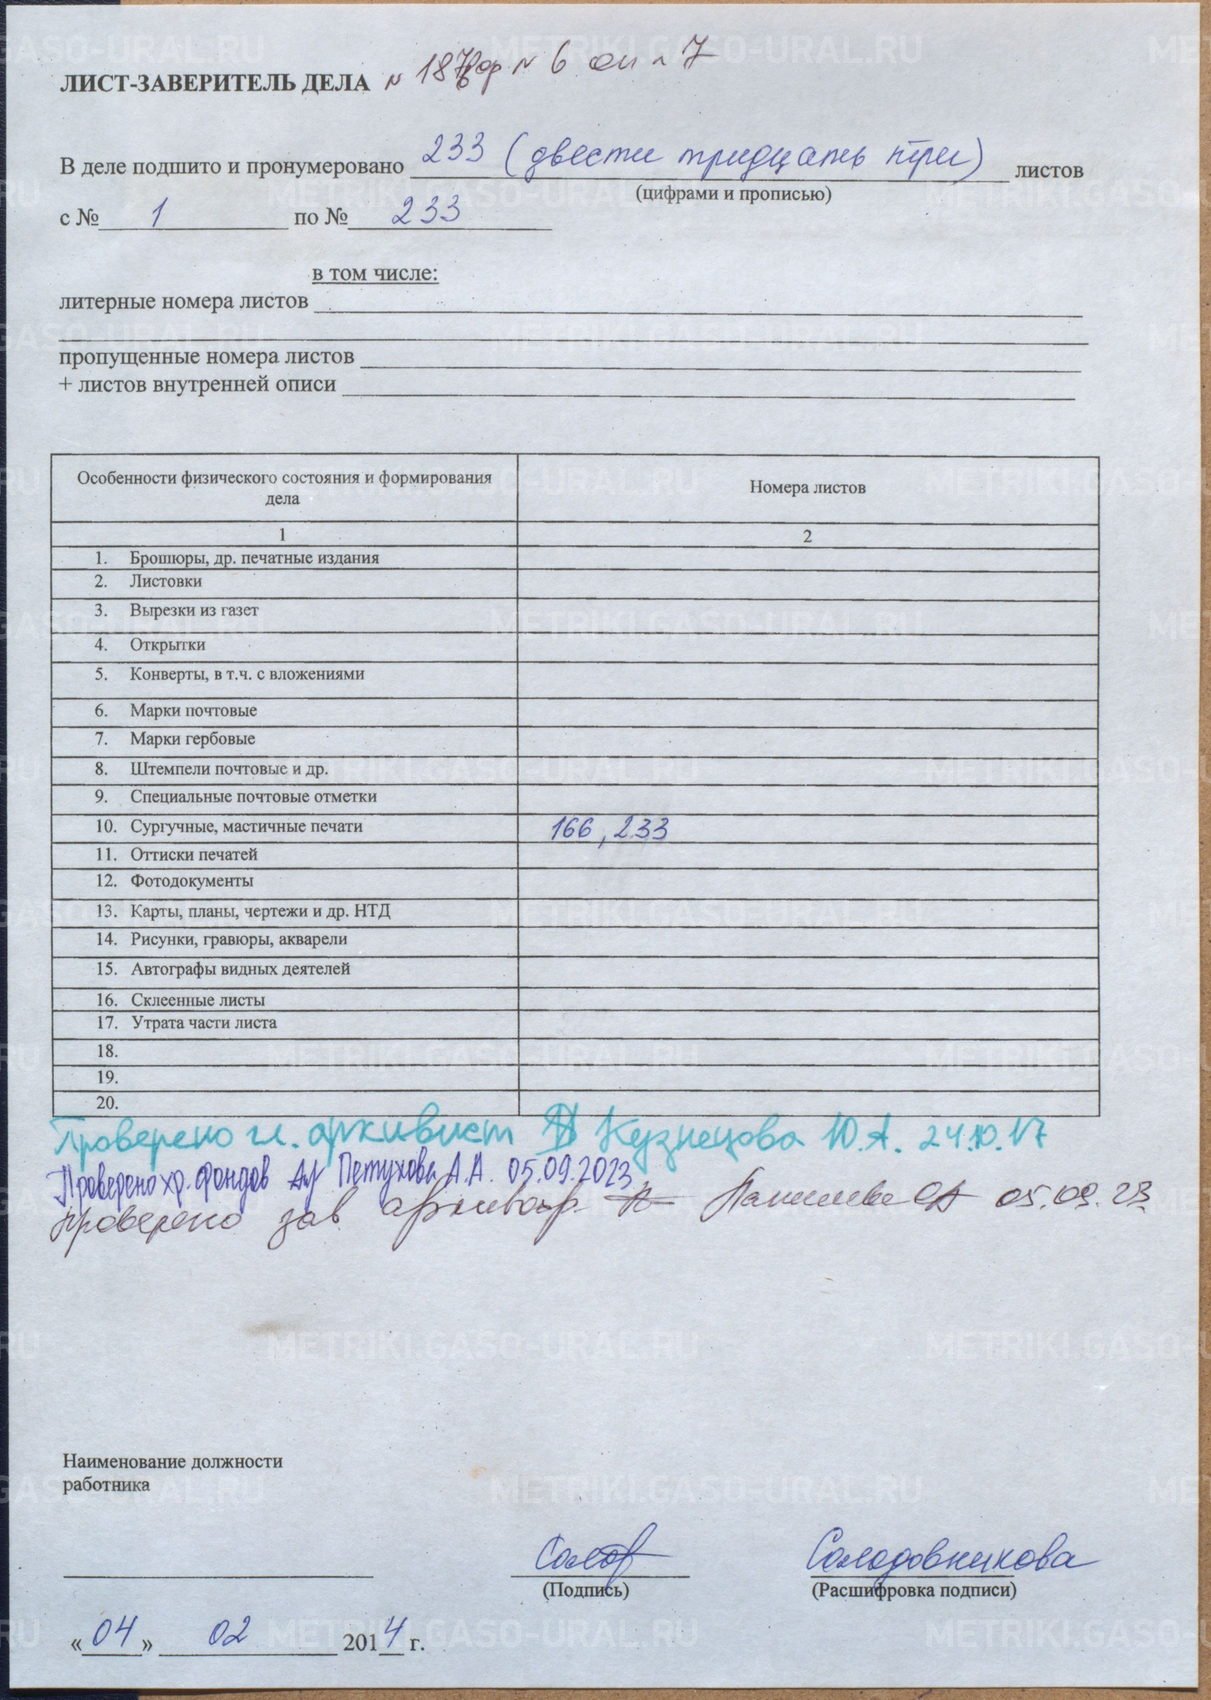 ЛИСТ-ЗАВЕРИТЕЛЬ ДЕЛА № 187 № 6 оп № 7
В деле подшито и пронумеровано 233 (двести тридцать три) листов
(цифрами и прописью)
с № 1 по № 233
в том числе:
литерные номера листов
пропущенные номера листов
+ листов внутренней описи
Особенности физического состояния и формирования дела Номера листов
1 2
1. Брошюры, др. печатные издания
2. Листовки
3. Вырезки из газет
4. Открытки
5. Конверты, в т.ч. с вложениями
6. Марки почтовые
7. Марки гербовые
8. Штемпели почтовые и др.
9. Специальные почтовые отметки
10. Сургучные, мастичные печати 166, 233
11. Оттиски печатей
12. Фотодокументы
13. Карты, планы, чертежи и др. НТД
14. Рисунки, гравюры, акварели
15. Автографы видных деятелей
16. Склеенные листы
17. Утрата части листа
18.
19.
20.
Проверено гл. архивист Кузнецова Ю.А. 24.10.17
Проверено хр. фондов Петухова А.А. 05.09.2023
Проверено зав архивохр. 05.09.23
Наименование должности
работника
Солодовникова
(Подпись) (Расшифровка подписи)
«04» 02 2014 г.
METRIKI.GASO-URAL.RU